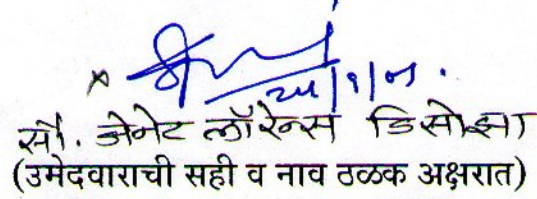 सौ. जेनेट लॉरेन्स डिसोझा
(उमेदवाराची सही व नाव ठळक अक्षरात)